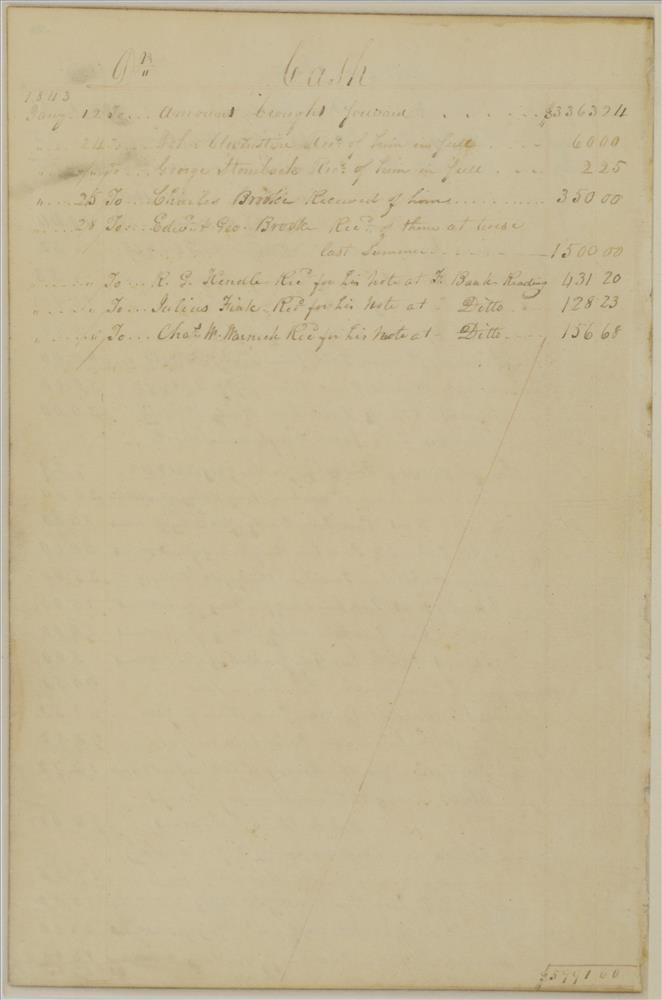 Dr Cash
1843
Jany 12 To... Amount brought forward ...... $3363 24
" 24 To... John Recd. of him in full .... 60 00
" " To... George Recd. of him in full .... 2 25
" 25 To... Charles Brooke Received of him .......... 350 00
" 28 To... Edwd. & Geo. Brooke Recd. of them at
last Summer ........ 1500 00
" " To... R. G. Hendle Recd for his Note at F. Bank Reading 431 20
" " To... Julius Fink Recd. for his Note at Ditto ... 128 23
" " To... Chas. W. Warnick Recd for his Note at Ditto .... 156 68
$5991.60